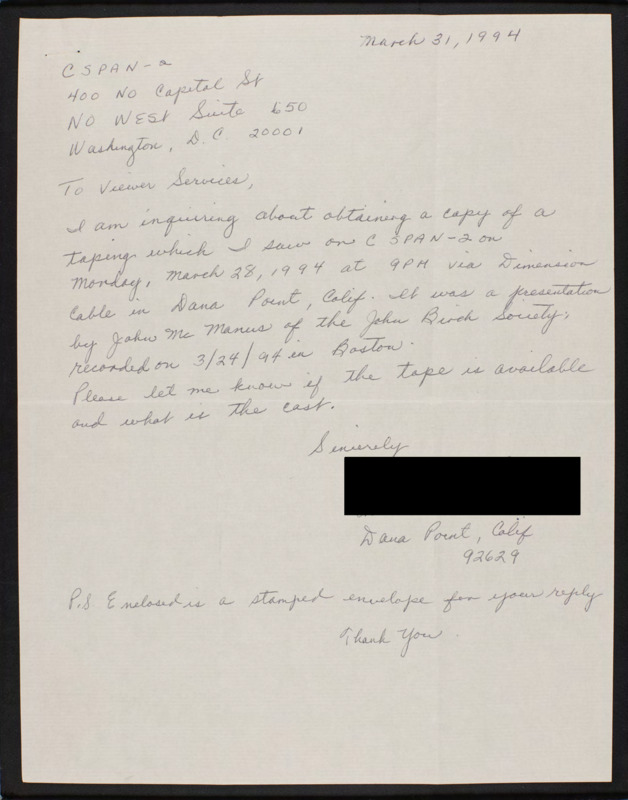 March 31, 1994
CSPAN-2
400 No Capital St
No West Suite 650
Washington, D.C. 20001
To Viewer Services,
I am inquiring about obtaining a copy of a
taping which I saw on C SPAN-2 on
Monday, March 28, 1994 at 9PM via Dimension
Cable in Dana Point, Calif. It was a presentation
by John Mc Manus of the John Birch Society,
recorded on 3/24/94 in Boston.
Please let me know if the tape is available
and what is the cost.
Sincerely
Dana Point, Calif
92629
P.S. Enclosed is a stamped envelope for your reply
Thank You.